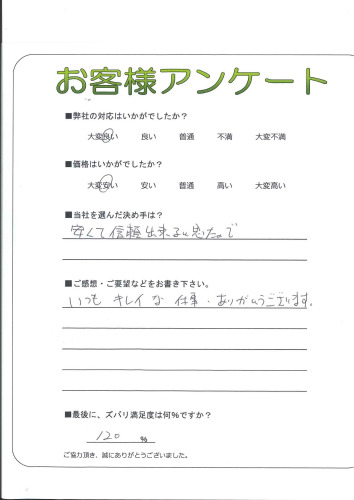 お客様アンケート
■弊社の対応はいかがでしたか？
大変良い　良い　普通　不満　大変不満
■価格はいかがでしたか？
大変安い　安い　普通　高い　大変高い
■当社を選んだ決め手は？
安くて信頼出来ると思たので
■ご感想・ご要望などをお書き下さい。
いつも キレイな 仕事・ありがとうございます。
■最後に、ズバリ満足度は何％ですか？
120 ％
ご協力頂き、誠にありがとうございました。